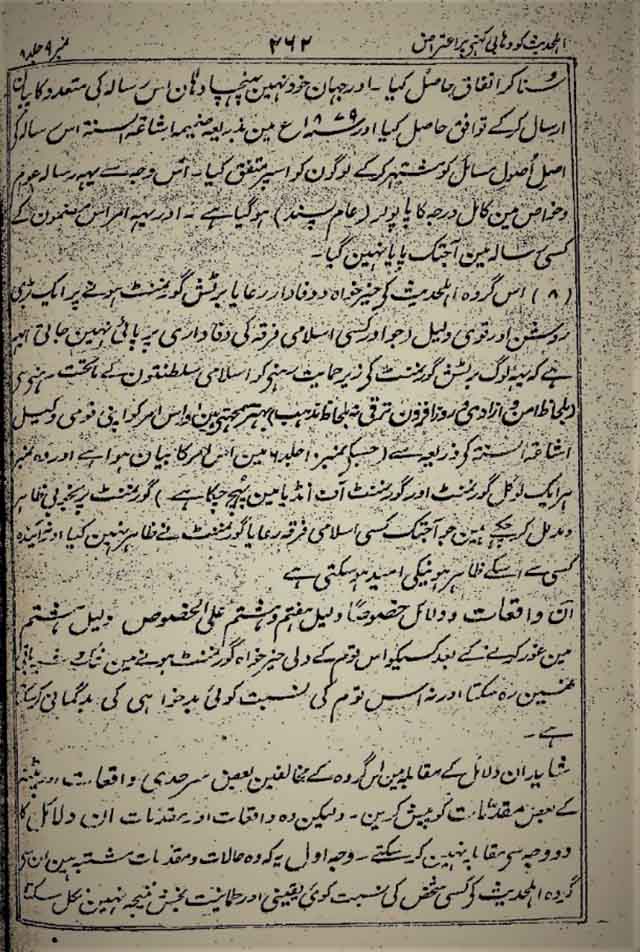 اہلحدیث کو وہابی کہنے پر اعتراض ۲۶۲ نمبر ۹ جلد ۸
و سنا کر اتفاق حاصل کیا۔ اور جہان خود نہین پہنچا وہان اس رسالہ کی متعدد کاپیان
ارسال کرکے توافق حاصل کیا اور ۱۸۷۹ع مین بذریعہ ضمیمہ اشاعۃ السنۃ اس رسالہ کی
اصل اصول مسائل کو مشتہر کرکے لوگون کو اسپر متفق کیا۔ اس وجہ سے یہہ رسالہ عوام
و خواص مین کامل درجہ کا پاپولر (عام پسند) ہوگیا ہے۔ اور یہہ امر اس مضمون کے
کسی رسالہ مین آجتک پایا نہین گیا۔
(۸) اس گروہ اہلحدیث کے خیر خواہ و وفادار رعایا برٹش گورنمنٹ ہونے پر ایک بڑی
روشن اور قوی دلیل (جو اور کسی اسلامی فرقہ کی وفاداری پر پائی نہین جاتی) یہہ
ہے کہ یہہ لوگ برٹش گورنمنٹ کی زیر حمایت رہنے کو اسلامی سلطنتون کے ماتحت رہنے سے
(بلحاظ امن و ازادی و روز افزون ترقی نہ بلحاظ مذہب) بہتر سمجھتے ہین اور اس امر کو اپنی قومی وکیل
اشاعۃ السنۃ کے ذریعہ سے (جسکے نمبر ۱۰ جلد ۶ مین اس امر کا بیان ہوا ہے اور وہ نمبر
ہر ایک لوکل گورنمنٹ اور گورنمنٹ آف انڈیا مین پہنچ چکا ہے) گورنمنٹ پر بخوبی ظاہر
و مدلل کرچکے ہین جو آجتک کسی اسلامی فرقہ رعایا گورنمنٹ نے ظاہر نہین کیا اور نہ آیندہ
کسی سے اسکے ظاہر ہونیکی امید ہوسکتی ہے
ان واقعات و دلائل خصوصًا دلیل ہفتم و ہشتم علی الخصوص دلیل ہشتم
مین غور کرنے کے بعد کسیکو اس قوم کے دلی خیر خواہ گورنمنٹ ہونے مین شک باقی
نہین رہ سکتا اور نہ اس قوم کی نسبت کوئی بدخواہی کی بدگمانی کرسکتا
ہے۔
شاید ان دلائل کے مقابلہ مین اس گروہ کے مخالفین بعض سرحدی واقعات اور پٹنہ
کے بعض مقدمات کو پیش کرین۔ ولیکن وہ واقعات اور مقدمات ان دلائل کا
دو وجہ سے مقابلہ نہین کرسکتے۔ وجہ اول یہ کہ وہ حالات و مقدمات مشتبہ ہین ان سے
گروہ اہلحدیث کے کسی شخص کی نسبت کوئی یقینی اور طمانیت بخش نتیجہ نہین نکل سکتا